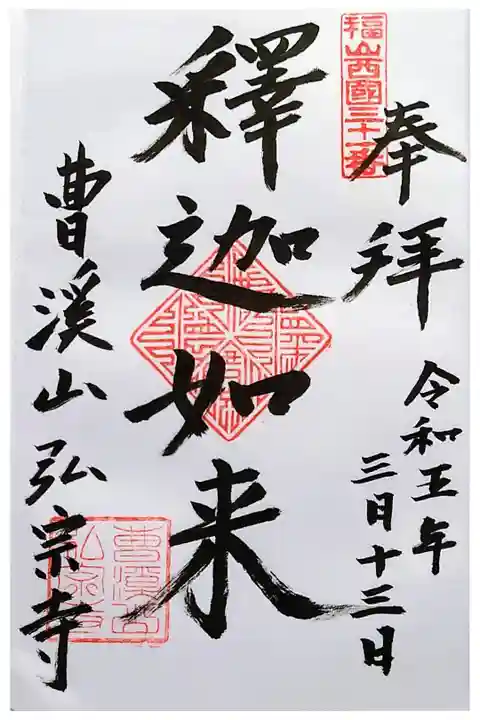 福山西國三十一番
奉拝
令和五年
三月十三日
釋迦如来
曹溪山弘宗寺
曹溪山弘宗寺